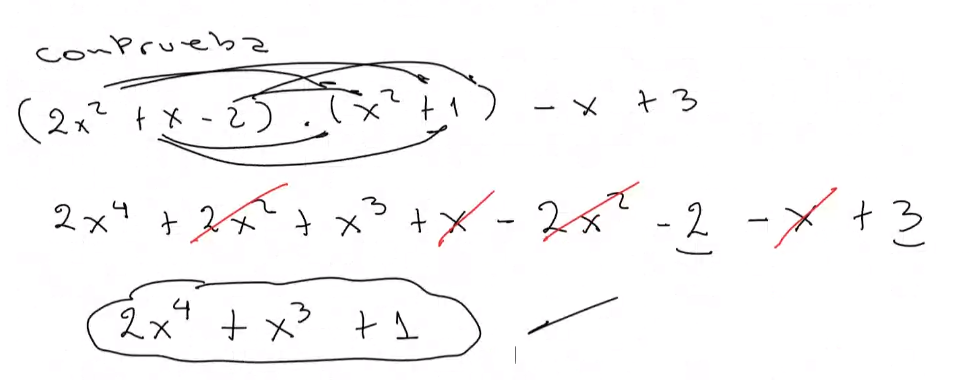 conprueba
(2x² + x - 2) · (x² + 1) - x + 3
2x⁴ + 2x² + x³ + x - 2x² - 2 - x + 3
2x⁴ + x³ + 1